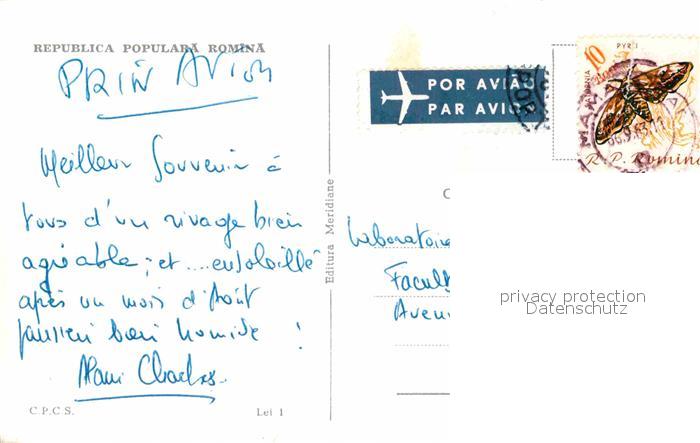 REPUBLICA POPULARĂ ROMÎNĂ
PRIN AVION
Meilleur Souvenir à
tous d'un rivage bien
agréable; et .... ensoleillé
après un mois d'Août
parisien bien humide !
Alain Charles.
C.P.C.S.
Lei 1
Editura Meridiane
POR AVIAO
PAR AVION
10
R.P. Romina
C
Laboratoire
Facult
Aven
privacy protection
Datenschutz